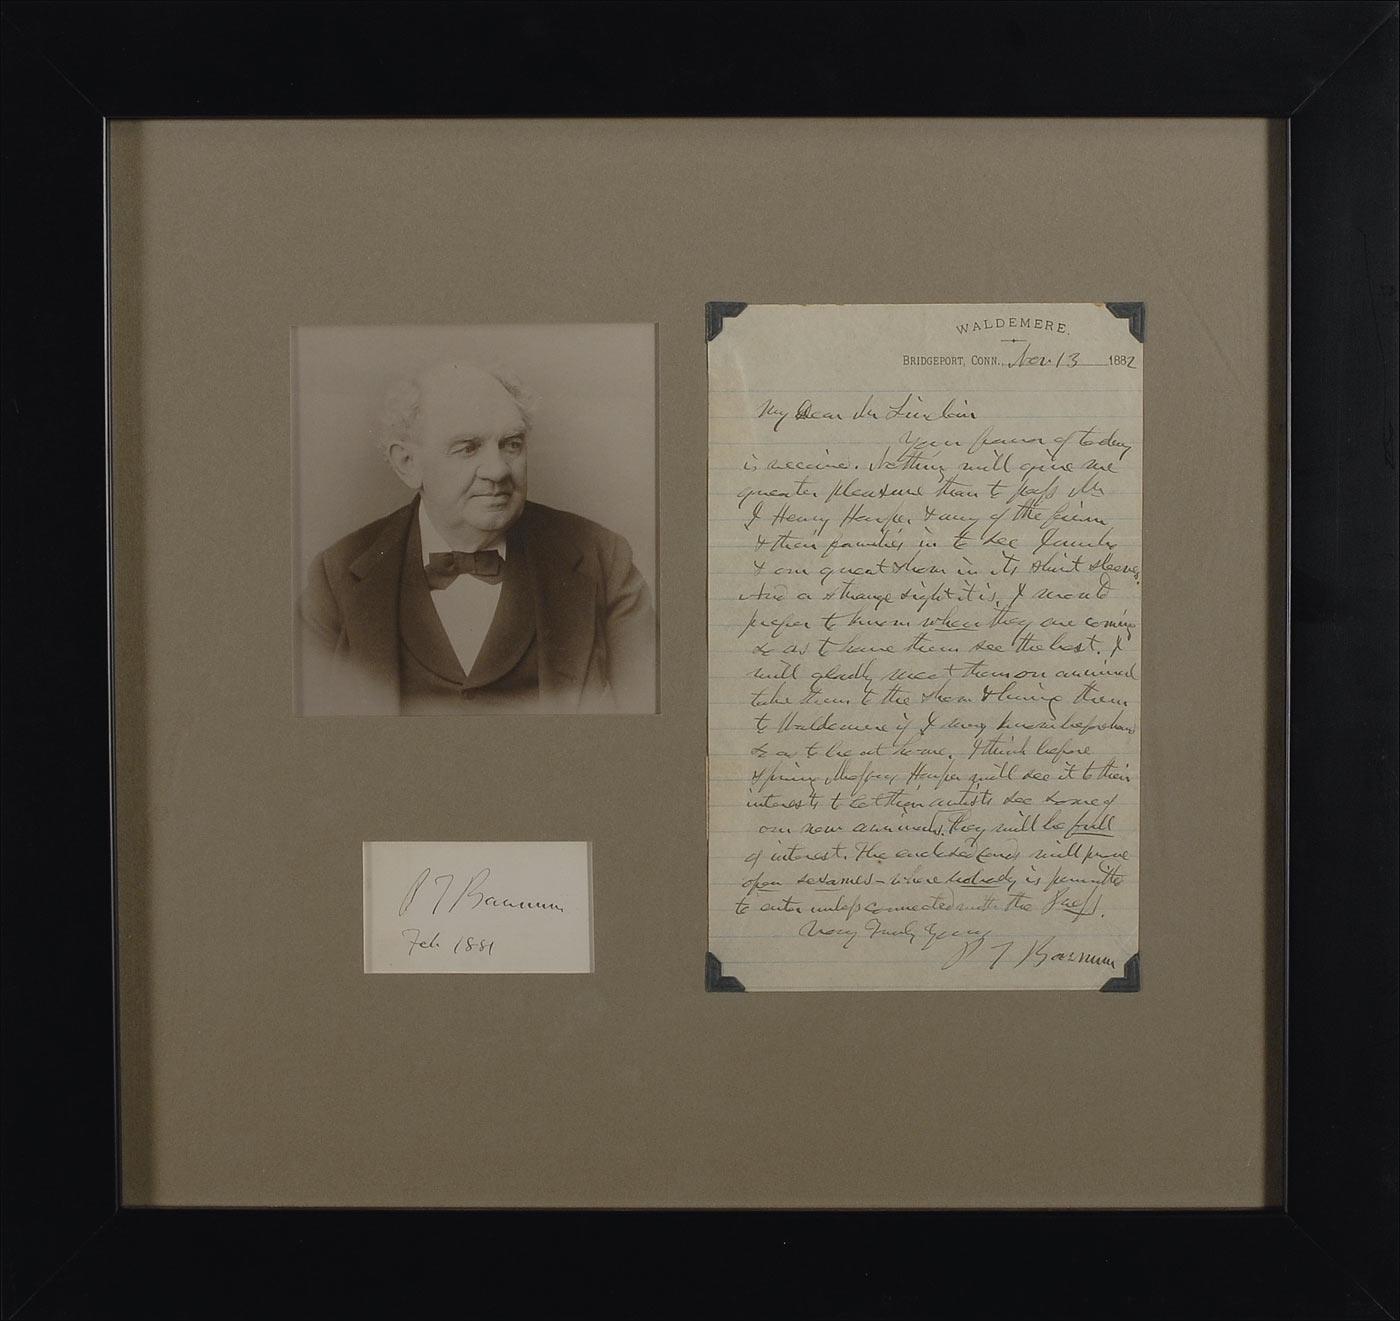 P T Barnum
Feb 1881
WALDEMERE.
BRIDGEPORT, CONN., Nov 13 1882
My Dear Mr
Your favor of today
is receive. Nothing will give me
greater pleasure than to pass Mr
J Henry Harper & any of the firm
& their families in to see Jumbo
& our great show in its shirt sleeves.
And a strange sight it is. I would
prefer to know when they are coming
so as to have them see the best. I
will gladly meet them on arrival
take them to the show & bring them
to Waldemere if I may know beforehand
so as to be at home. I think before
spring Messrs Harper will see it to their
interests to let their artists see some of
our new animals. They will be full
of interest. The enclosed cards will prove
open sesames - where nobody is permitted
to enter unless connected with the Press.
Very Truly Yours
P T Barnum